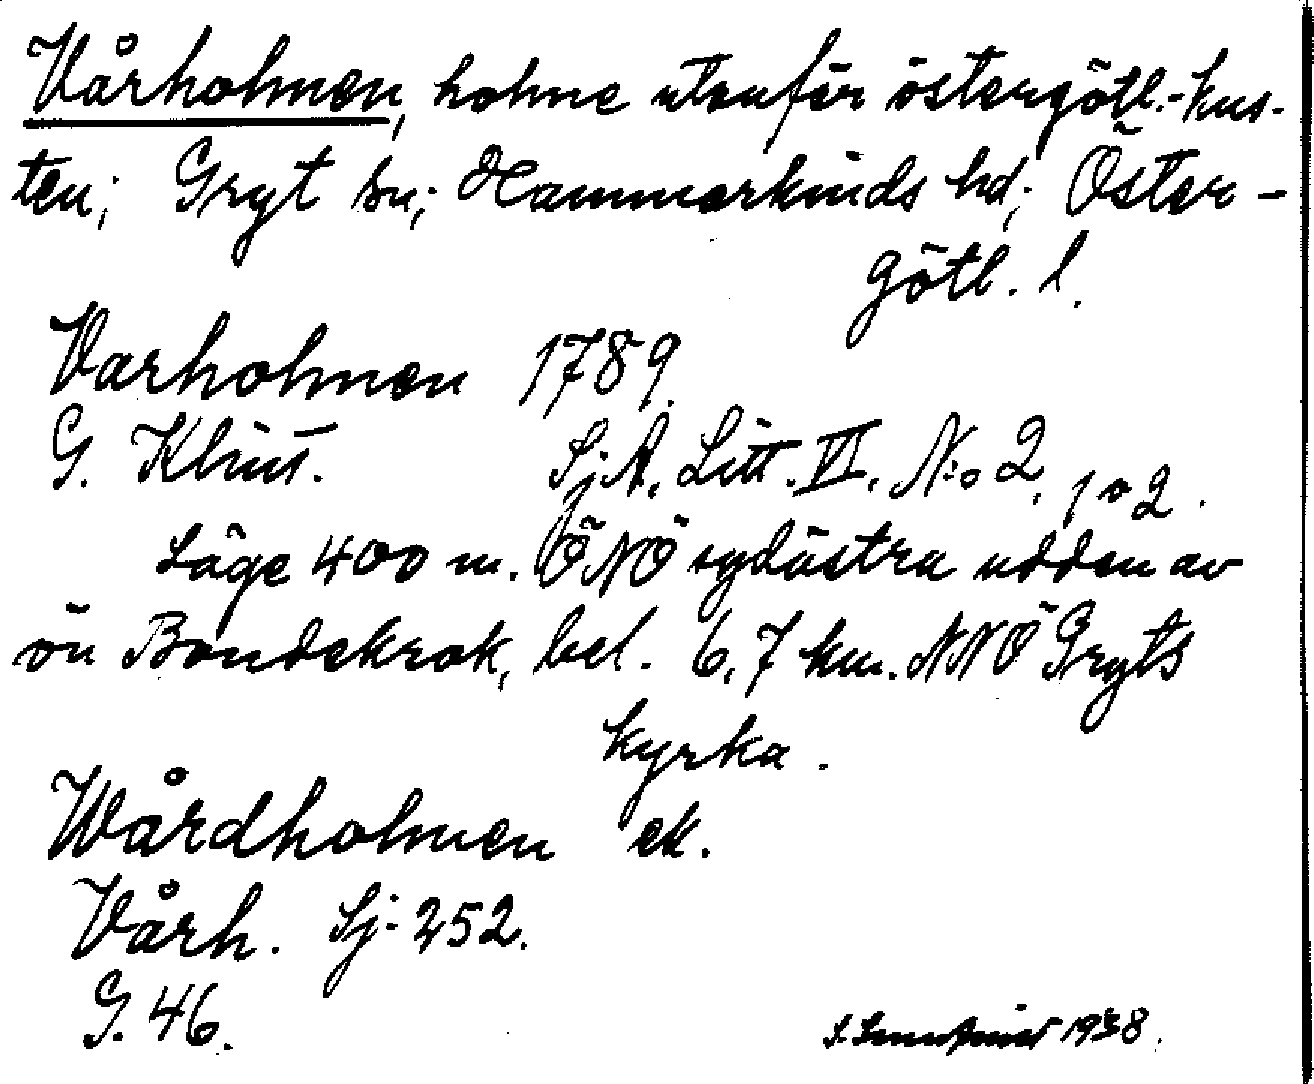 Vårholmen, holme utanför östergötl.-kus-
ten; Gryt sn; Hammarkinds hd; Öster-
götl. l.
Varholmen 1789.
G. Klint. SjA. Litt. VI. N:o 2, 1 o 2.
Läge 400 m. ÖNÖ sydöstra udden av
ön Bondekrok, bel. 6,7 km. NNÖ Gryts
kyrka.
Wårdholmen ek.
Vårh. Sj. 252.
G. 46.
1938.